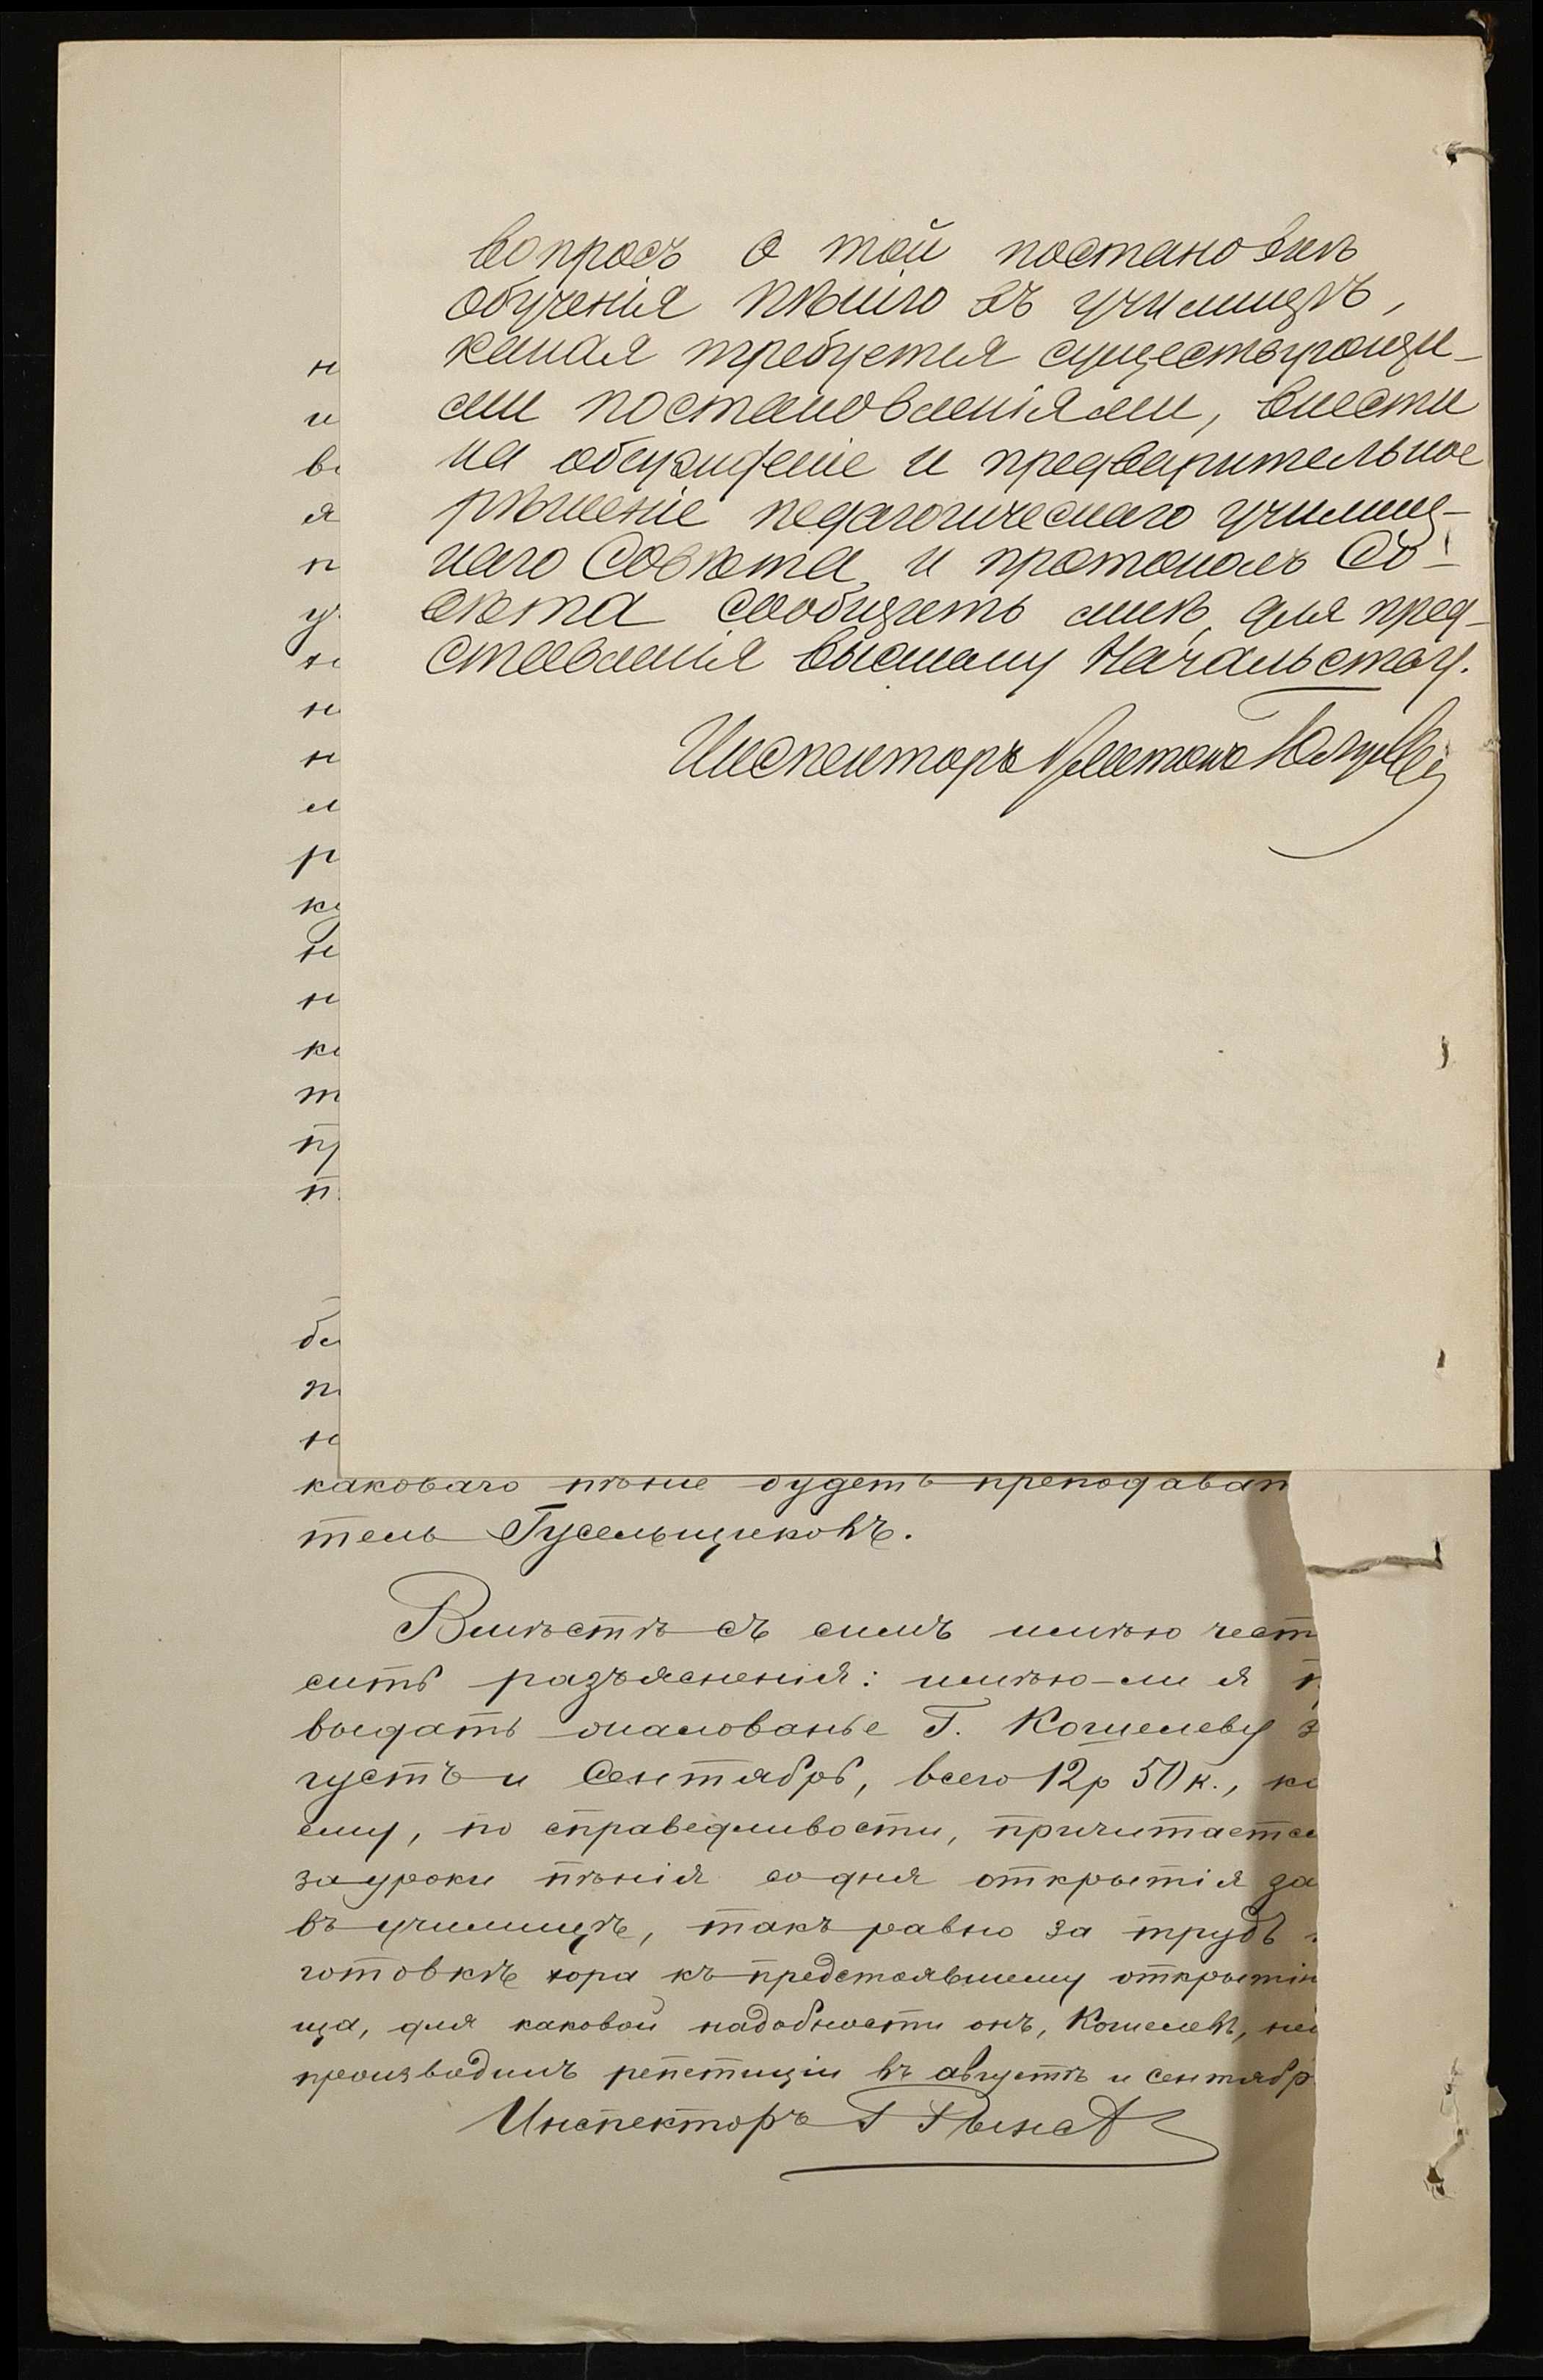 вопросъ о той постановкѣ
обученія пѣнію въ училищѣ,
какая требуется существующи-
ми постановленіями, внести
на обсужденіе и предварительное
рѣшеніе педагогическаго училищ-
наго Совѣта, и протоколъ Со-
вѣта сообщить мнѣ, для пред-
ставленія высшему Начальству.
Инспекторъ
н
и
в
я
п
у
н
н
н
м
р
к
н
н
к
т
п
п
б
п
н
каковаго пѣніе будетъ преподават
тель Гусельщиковъ.
Вмѣстѣ съ симъ имѣю чест
сить разъясненія: имѣю-ли я п
выдать жалованье Г. Кошелеву з
густъ и Сентябрь, всего 12 р 50 к., ко
ему, по справедливости, причитается
за уроки пѣнія со дня открытія за
въ училищѣ, такъ равно за трудъ
готовкѣ хора къ предстоявшему открытію
ща, для каковой надобности онъ, Кошелевъ, не
производилъ репетиціи въ августѣ и сентябр
Инспекторъ